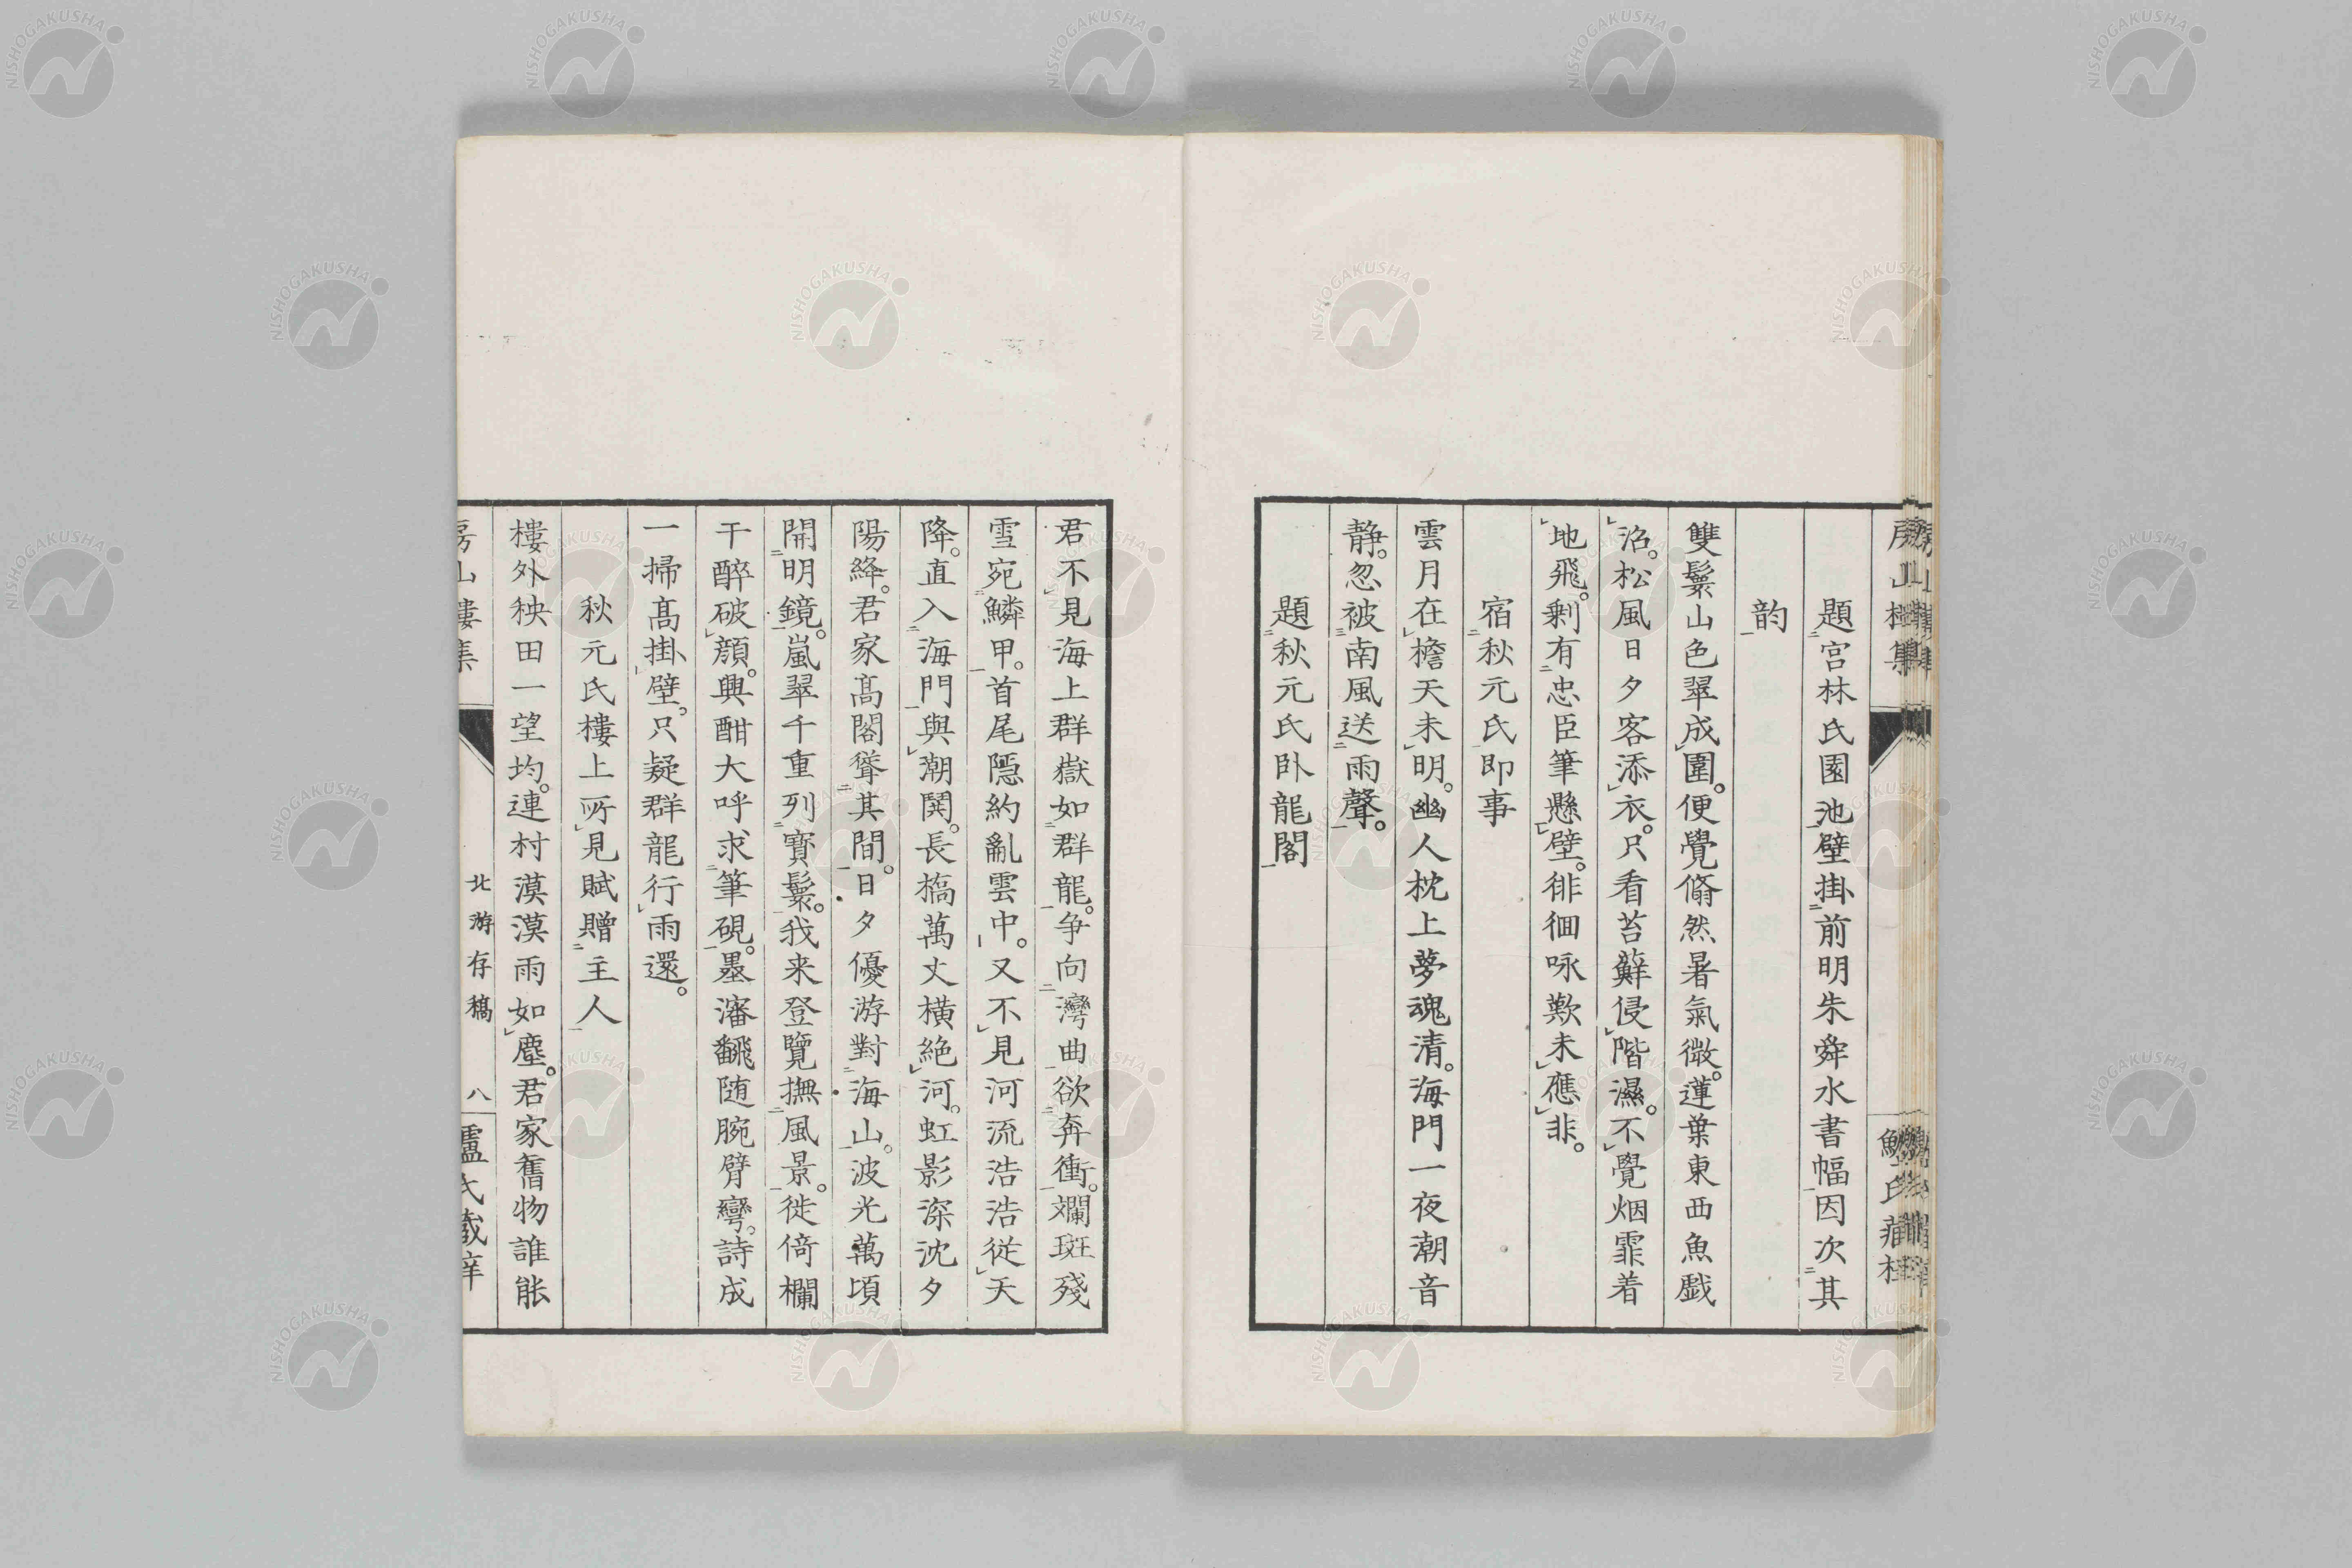 題宮林氏園池壁掛前明朱舜水書幅因次其
韵
雙鬟山色翠成圍。便覺翛然暑氣微。蓮葉東西魚戲
沼。松風日夕客添衣。只看苔蘚侵階濕。不覺烟霏着
地飛。剩有忠臣筆懸壁。徘徊咏歎未應非。
宿秋元氏即事
雲月在檐天未明。幽人枕上夢魂清。海門一夜潮音
静。忽被南風送雨聲。
題秋元氏卧龍閣
君不見海上群嶽如群龍。争向灣曲欲奔衝。斕斑殘
雪宛鱗甲。首尾隱約亂雲中。又不見河流浩浩從天
降。直入海門與潮鬨。長槗萬丈横絶河。虹影深沈夕
陽絳。君家髙閣聳其間。日夕優游對海山。波光萬頃
開明鏡。嵐翠千重列寶鬟。我来登覽撫風景。徙倚欄
干醉破顔。興酣大呼求筆硯。墨瀋飜随腕臂彎。詩成
一掃髙掛壁。只疑群龍行雨還。
秋元氏樓上所見賦贈主人
樓外秧田一望均。連村漠漠雨如塵。君家舊物誰能
房山樓集
北游存稿
八
鱸氏蔵梓
NISHOGAKUSHA